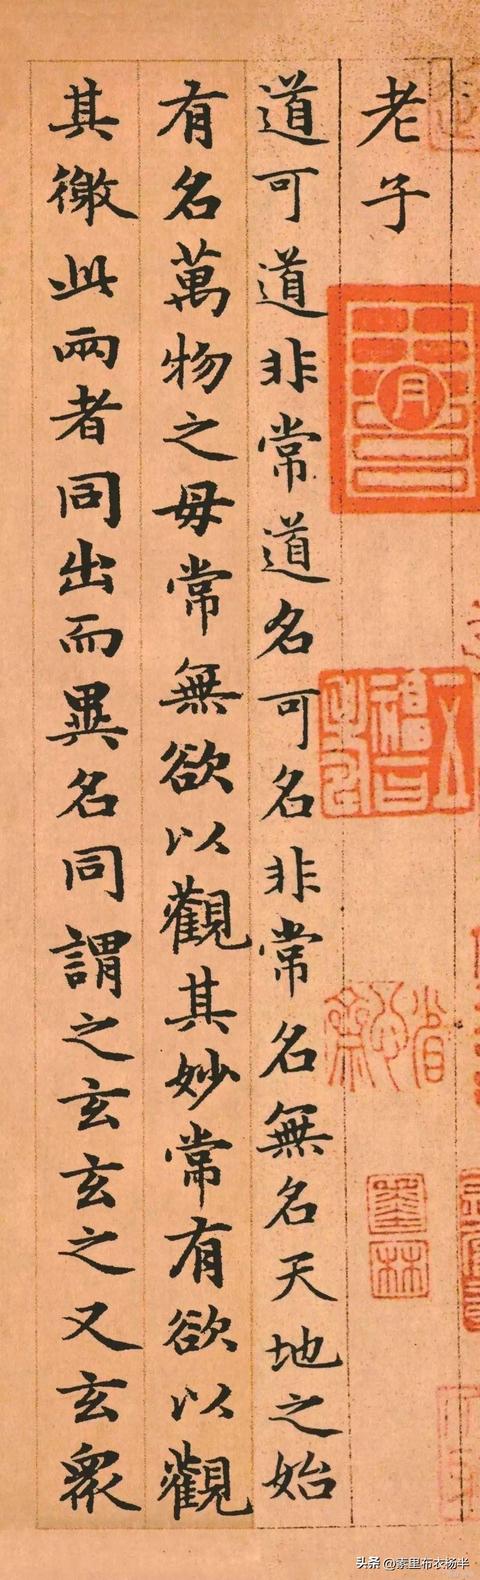 老子
道可道非常道名可名非常名無名天地之始
有名萬物之母常無欲以觀其妙常有欲以觀
其徼此兩者同出而異名同謂之玄玄之又玄衆
墨林
头条 @蒙里布衣杨半